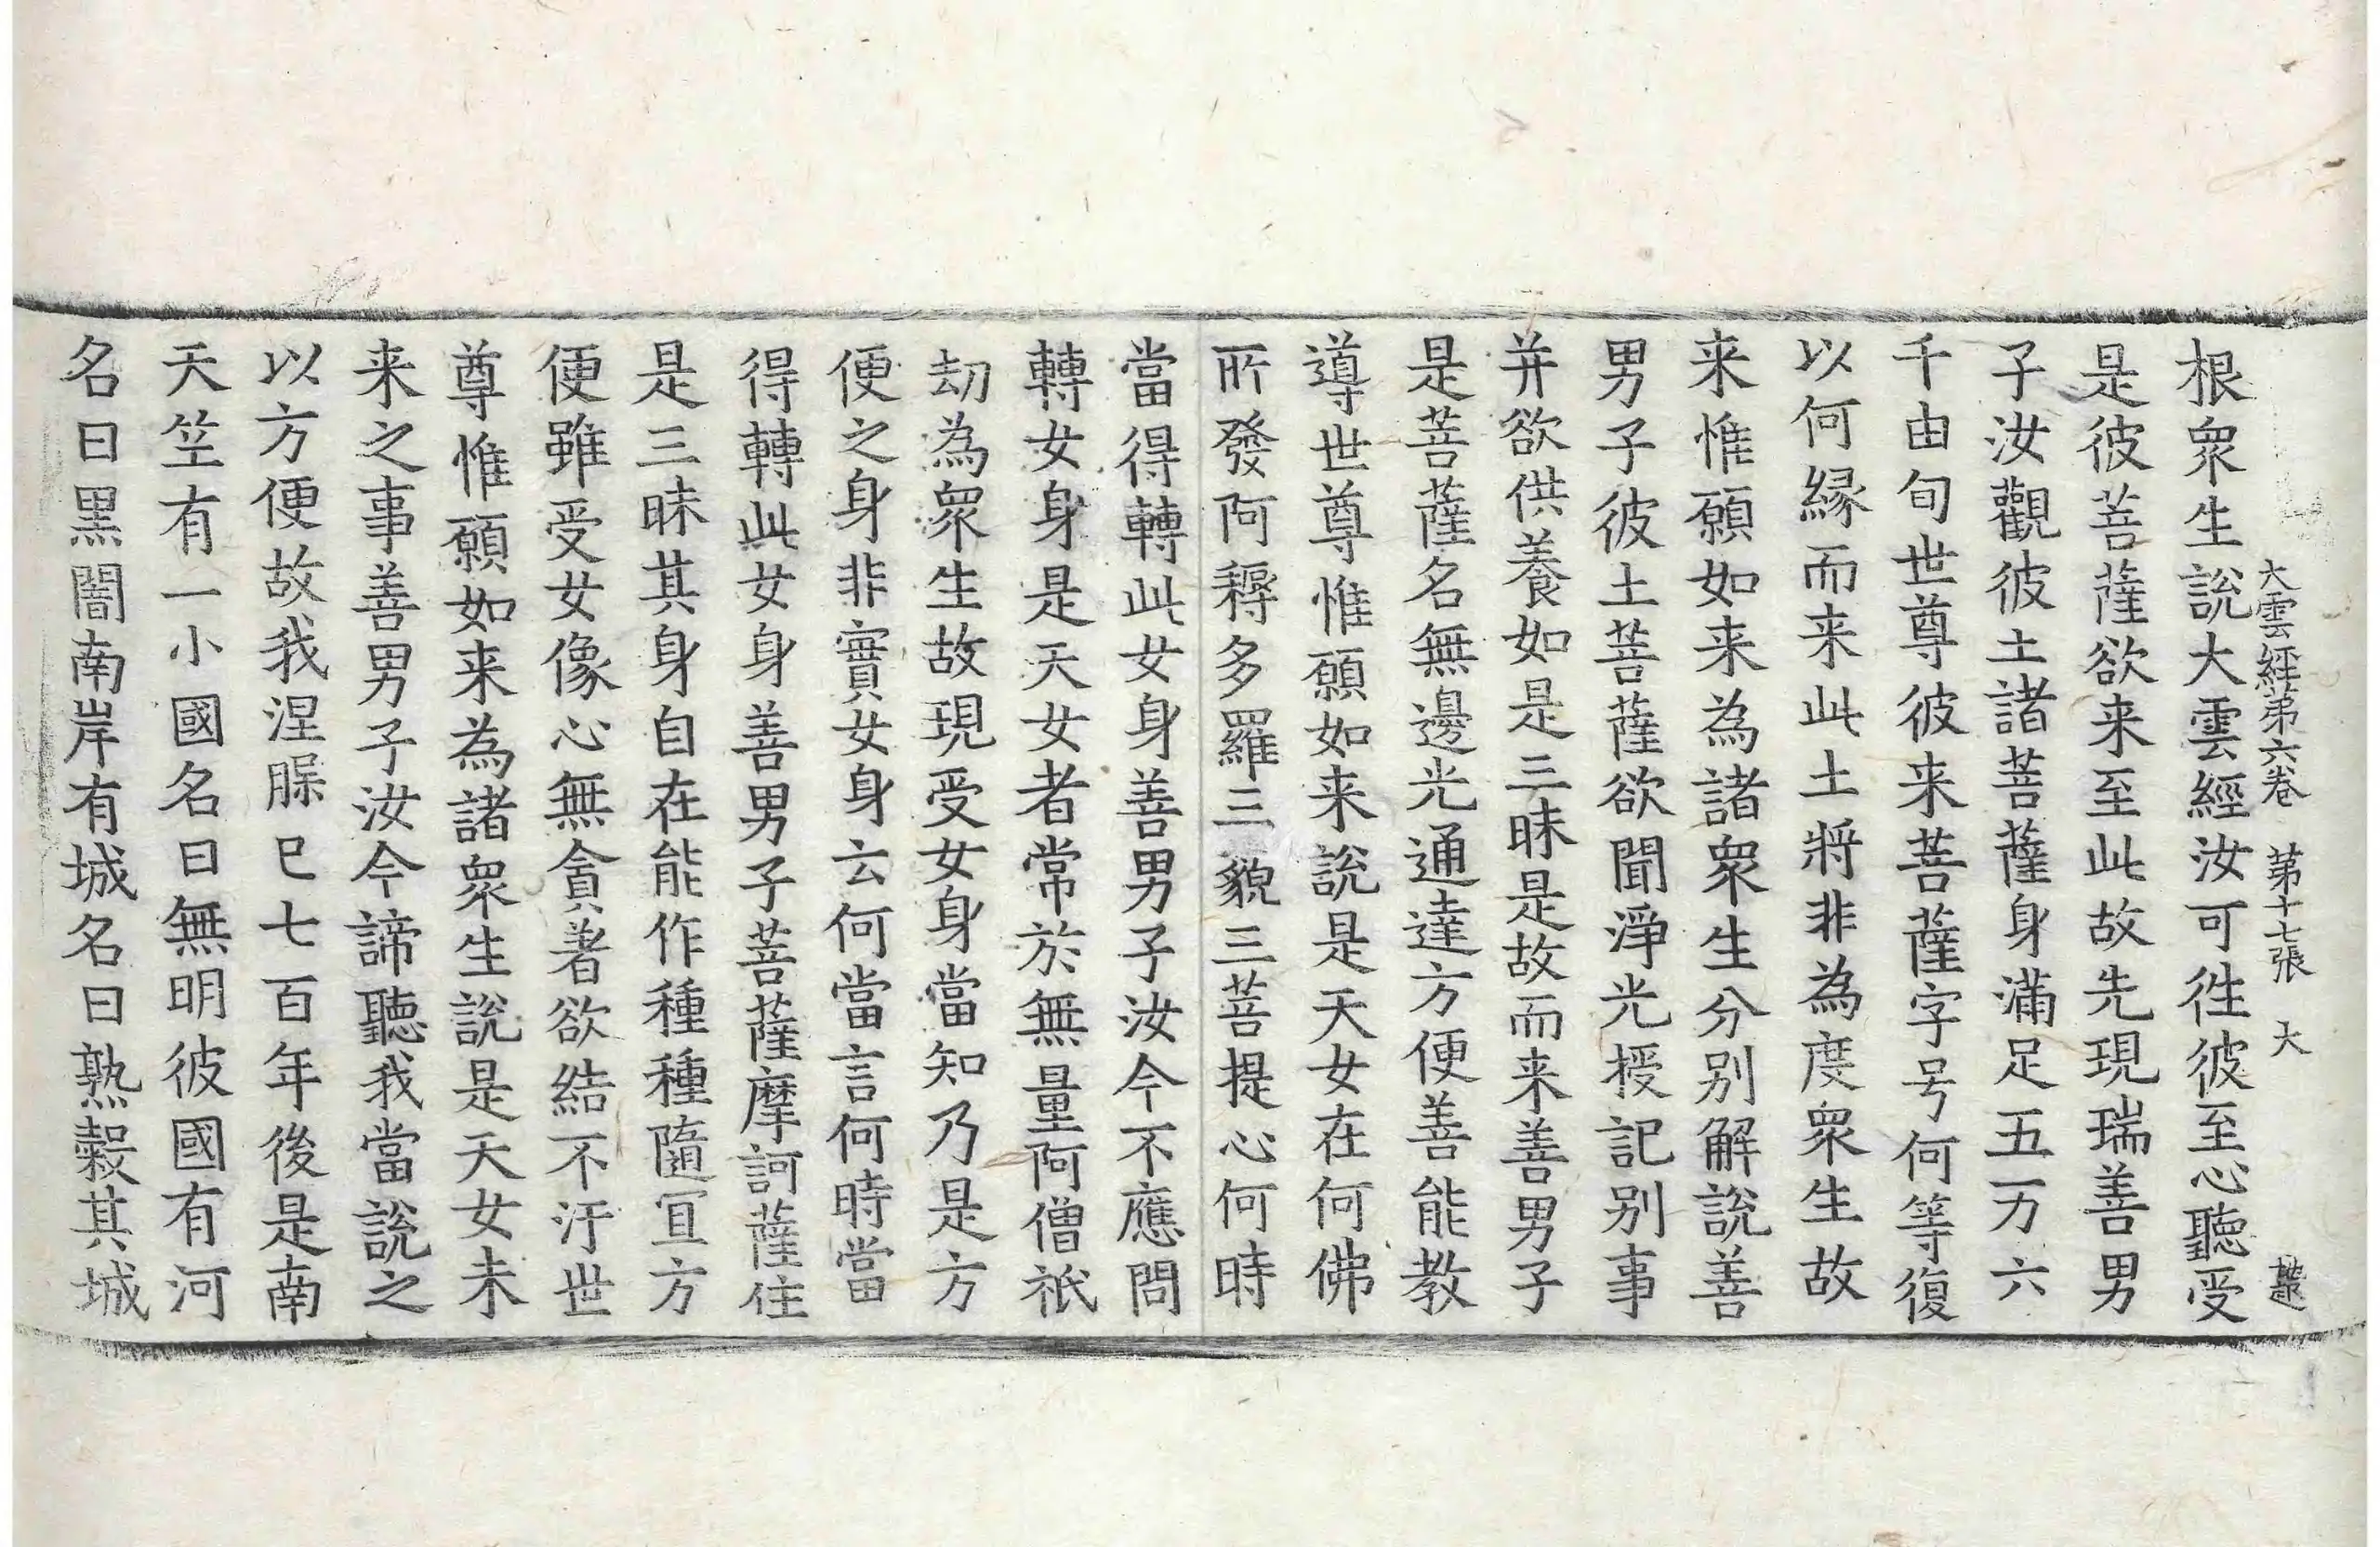 大雲經第六卷　第十七張　大
根衆生說大雲經汝可徃彼至心聽受
是彼菩薩欲来至此故先現瑞善男
子汝觀彼土諸菩薩身滿足五万六
千由旬世尊彼来菩薩字号何等復
以何緣而来此土將非為度衆生故
来惟願如来為諸衆生分别解說善
男子彼土菩薩欲聞淨光授記别事
并欲供養如是三昧是故而来善男子
是菩薩名無邊光通達方便善能教
導世尊惟願如来說是天女在何佛
所發阿耨多羅三藐三菩提心何時
當得轉此女身善男子汝今不應問
轉女身是天女者常於無量阿僧祇
劫為衆生故現受女身當知乃是方
便之身非實女身云何當言何時當
得轉此女身善男子菩薩摩訶薩住
是三昧其身自在能作種種隨宜方
便雖受女像心無貪著欲結不汙世
尊惟願如来為諸衆生說是天女未
来之事善男子汝今諦聽我當說之
以方便故我涅槃已七百年後是南
天竺有一小國名曰無明彼國有河
名曰黑闇南岸有城名曰熟穀其城